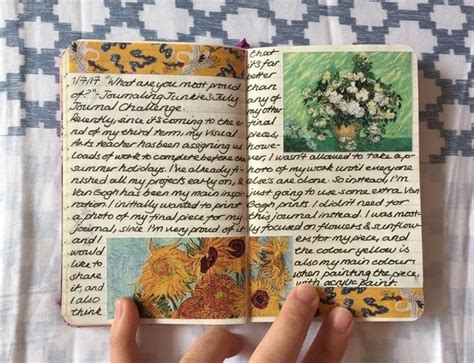 1/7/17 "What are you most proud
of?" - Journaling Junkies July
Journal Challenge.
Recently, since it's coming to the e-
nd of my third term, my Visual
Arts teacher has been assigning us
loads of work to complete before our
summer holidays. I've already fi-
nished all my projects early on, &
Van Gogh has been my main inspi-
ration. I initially wanted to print
a photo of my final piece for my
Journal, since I'm very proud of it
and I
would
like to
share
it, and
I also
think
that
it's far
better
than
any of
my other
final
pieces,
howe-
ver, I wasn't allowed to take a p-
hoto of my work until everyone
else's are done. So instead, I'm
just going to use some extra Van
Gogh prints I didn't need for
this journal instead. I was most-
ly focused on flowers & sunflow-
ers for my piece, and
the colour yellow is
also my main colour
when painting the piece,
with acrylic paint.